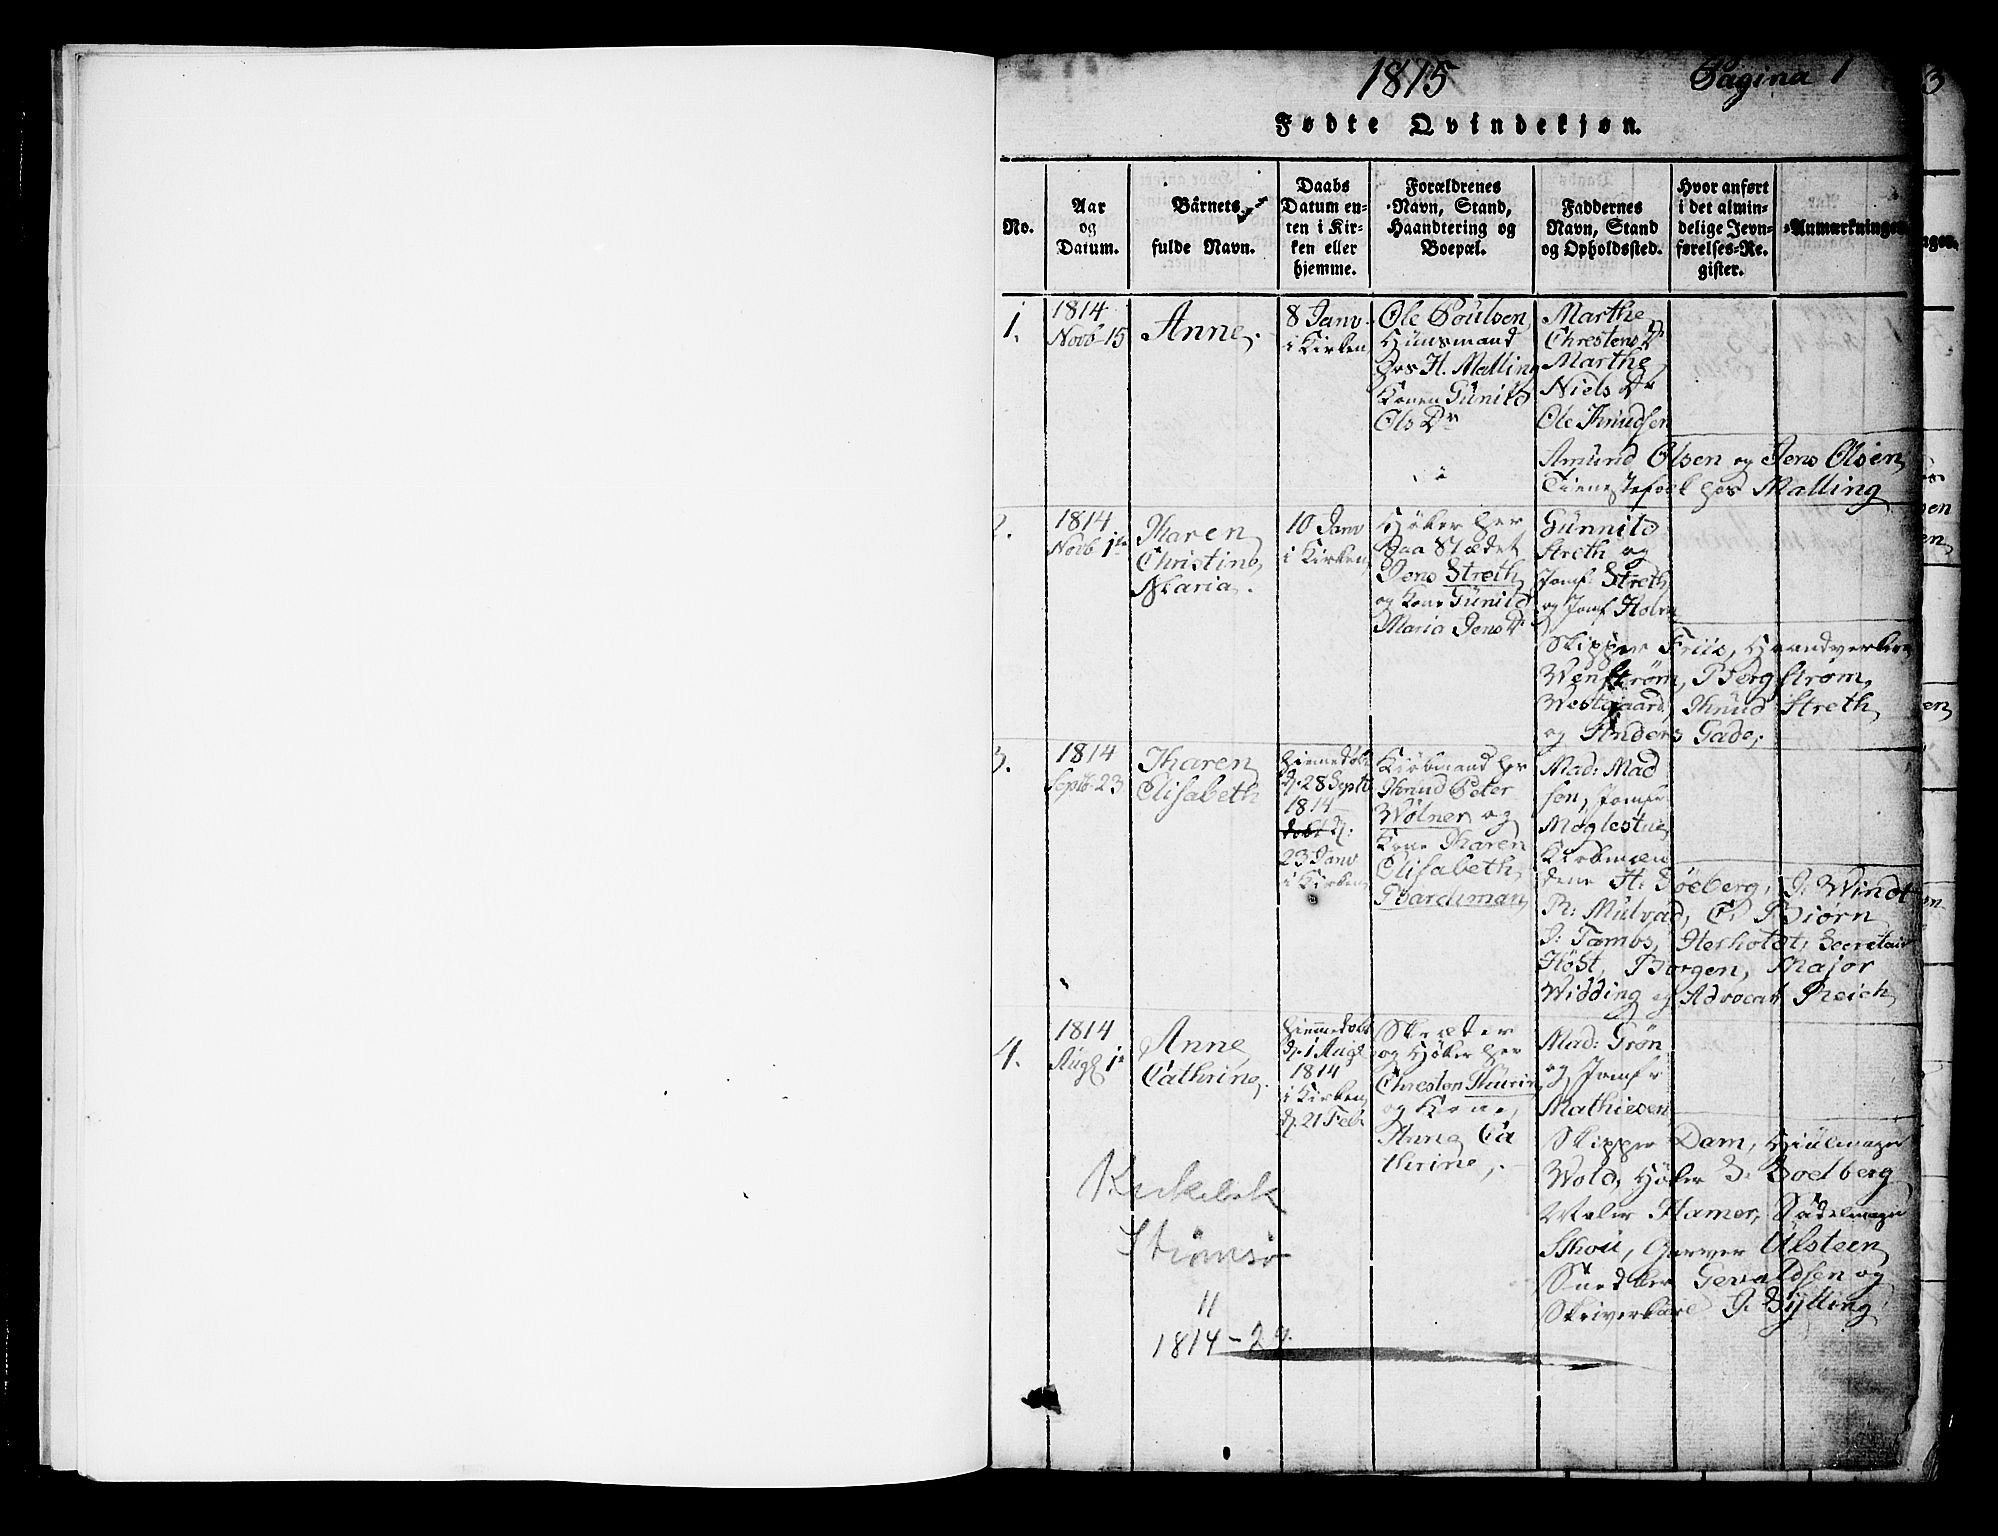 1815 Pagina 1
Fødte Qvindekjøn.
No.
Aar
og
Datum.
Bårnets
fulde Navn.
Daabs
Datum en-
ten i Kir-
ken eller
hjemme.
Forældrenes
Navn, Stand,
Haandtering og
Boepæl.
Faddernes
Navn, Stand
og Opholdssted.
Hvor anført
i det almin-
delige Jevn-
førelses-Re-
gister.
Anmærkninger
1.
1814
Novb 15
Anne.
8 Janv.
i Kirken
Ole Poulsen,
Huusmand
hos H. Malling
Konen Günild
Ols Dr
Marthe
Chrestens Dr
Marthe
Niels Dr
Ole Knudsen
Amund Olsen og Jens Olsen
Tienestefolk hos Malling
2.
1814
Novb 1te
Karen
Christine
Maria.
10 Janv
i Kirken
Høker her
paa Stædet
Jens Streth
og Kone Günild
Maria Jens Dr
Günnild
Streth og
Jomf: Streth
og Jomf Holm
Skipper Friis, Haandverker
Wenstrøm, Bergstrøm,
Westgaard, Knud Streth
og Anders Gade.
3.
1814
Septb 23
Karen
Elisabeth
hiemmedøbt
d. 28 Septb
1814
døbt d.
23 Janv
i Kirken
Kiøbmand her
Knud Peter
Wølner og
Kone Karen
Elisabeth
Bardeman
Mad: Mad
sen, Jomfr
Møglestue
Kiøbmæn
dene H: Søeberg, J: Windt
R: Mulvad, C. Biørn
J: Tambs, Herholdt, Secretair
Høst, Borgen, Major
Widding og Advocat Reich
4.
1814
Augs 1te
Anne
Cathrine.
hiemmedøbt
d. 1 Augs
1814
i Kirken
d. 21 Feb
Skræder
og Høker her
Chresten Thurin
og Kone,
Anne Ca
thrine.
Mad: Grøn
og Jomfr
Mathiesen
Skipper Dam, Hiulmager
Wold, Høker S. Boelberg
Maler Hamer, Sadelmager
Skou, Garver Ulsteen
Snedker Gevaldsen og
Skriverkarl J. Gylling
Kirkebok
Strømsø
11
1814 - 29.